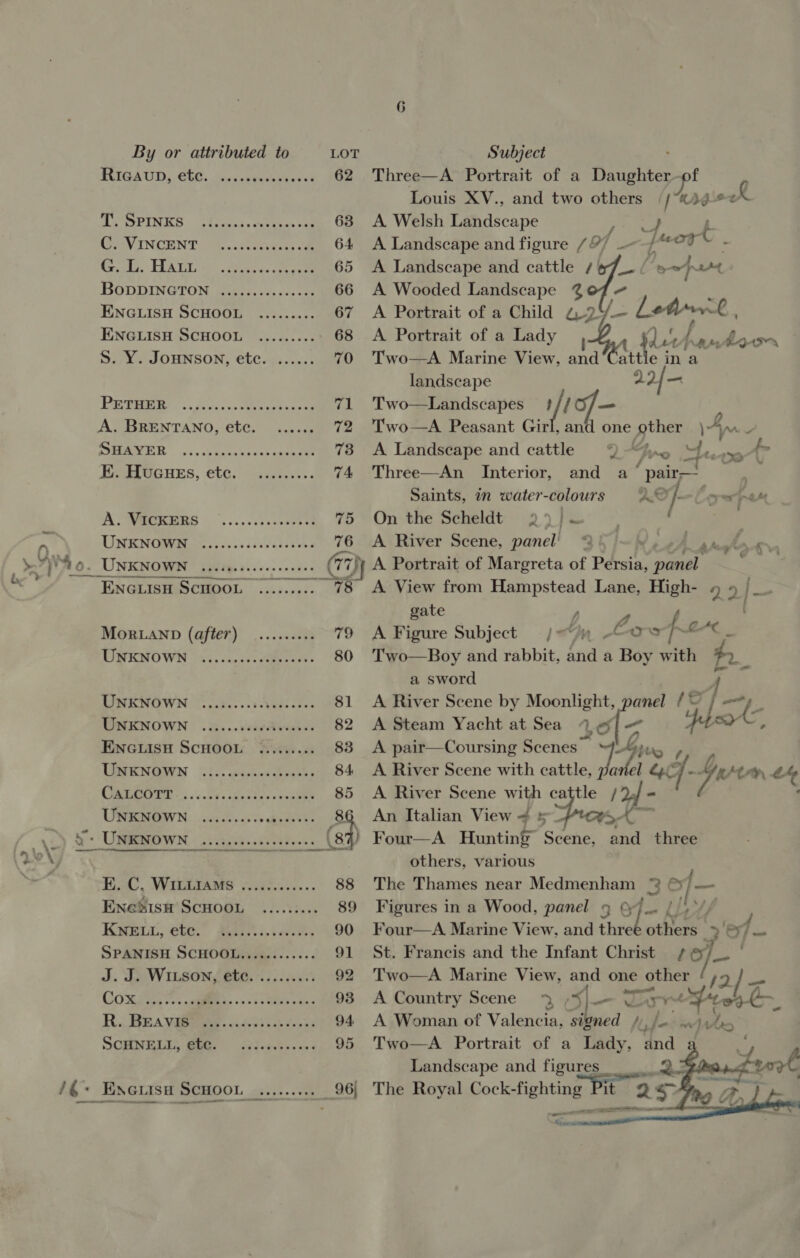 6
By or attributed to LOT Subject
RIGAUD, etc. ............... 62 Three—A Portrait of a Daughter of
Louis XV., and two others
T. SPINKS .................. 63 A Welsh Landscape
C. VINCENT ............... 64 A Landscape and figure
G. L. HALL ............... 65 A Landscape and cattle
BODDINGTON ............... 66 A Wooded Landscape
ENGLISH SCHOOL ......... 67 A Portrait of a Child
ENGLISH SCHOOL ......... 68 A Portrait of a Lady
S. Y. JOHNSON, etc. ...... 70 Two—A Marine View, and Cattle in a
landscape 22/-
PETHER ..................... 71 Two—Landscapes
A. BRENTANO, etc. ...... 72 Two—A Peasant Girl, and one other
SHAYER ..................... 73 A Landscape and cattle
E. HUGHES, etc. ......... 74 Three—An Interior, and a pair—
Saints, in water-colours
A. VICKERS ............... 75 On the Scheldt
UNKNOWN .................. 76 A River Scene, panel
UNKNOWN .................. 77 A Portrait of Margreta of Persia, panel
ENGLISH SCHOOL ......... 78 A View from Hampstead Lane, High-
gate
MORLAND (after) ......... 79 A Figure Subject
UNKNOWN .................. 80 Two—Boy and rabbit, and a Boy with
a sword
UNKNOWN .................. 81 A River Scene by Moonlight, panel
UNKNOWN .................. 82 A Steam Yacht at Sea
ENGLISH SCHOOL ......... 83 A pair—Coursing Scenes
UNKNOWN .................. 84 A River Scene with cattle, panel
CALCOTT ..................... 85 A River Scene with cattle
UNKNOWN .................. 86 An Italian View
UNKNOWN .................. 87 Four—A Hunting Scene, and three
others, various
E. C. WILLIAMS ............ 88 The Thames near Medmenham
ENGLISH SCHOOL ......... 89 Figures in a Wood, panel
KNELL, etc. ............... 90 Four—A Marine View, and three others
SPANISH SCHOOL............ 91 St. Francis and the Infant Christ
J. J. WILSON, etc. ......... 92 Two—A Marine View, and one other
COX ........................ 93 A Country Scene
R. BEAVIS .................. 94 A Woman of Valencia, signed
SCHNELL, etc. ............ 95 Two—A Portrait of a Lady, and a
Landscape and figures
ENGLISH SCHOOL ......... 96 The Royal Cock-fighting Pit